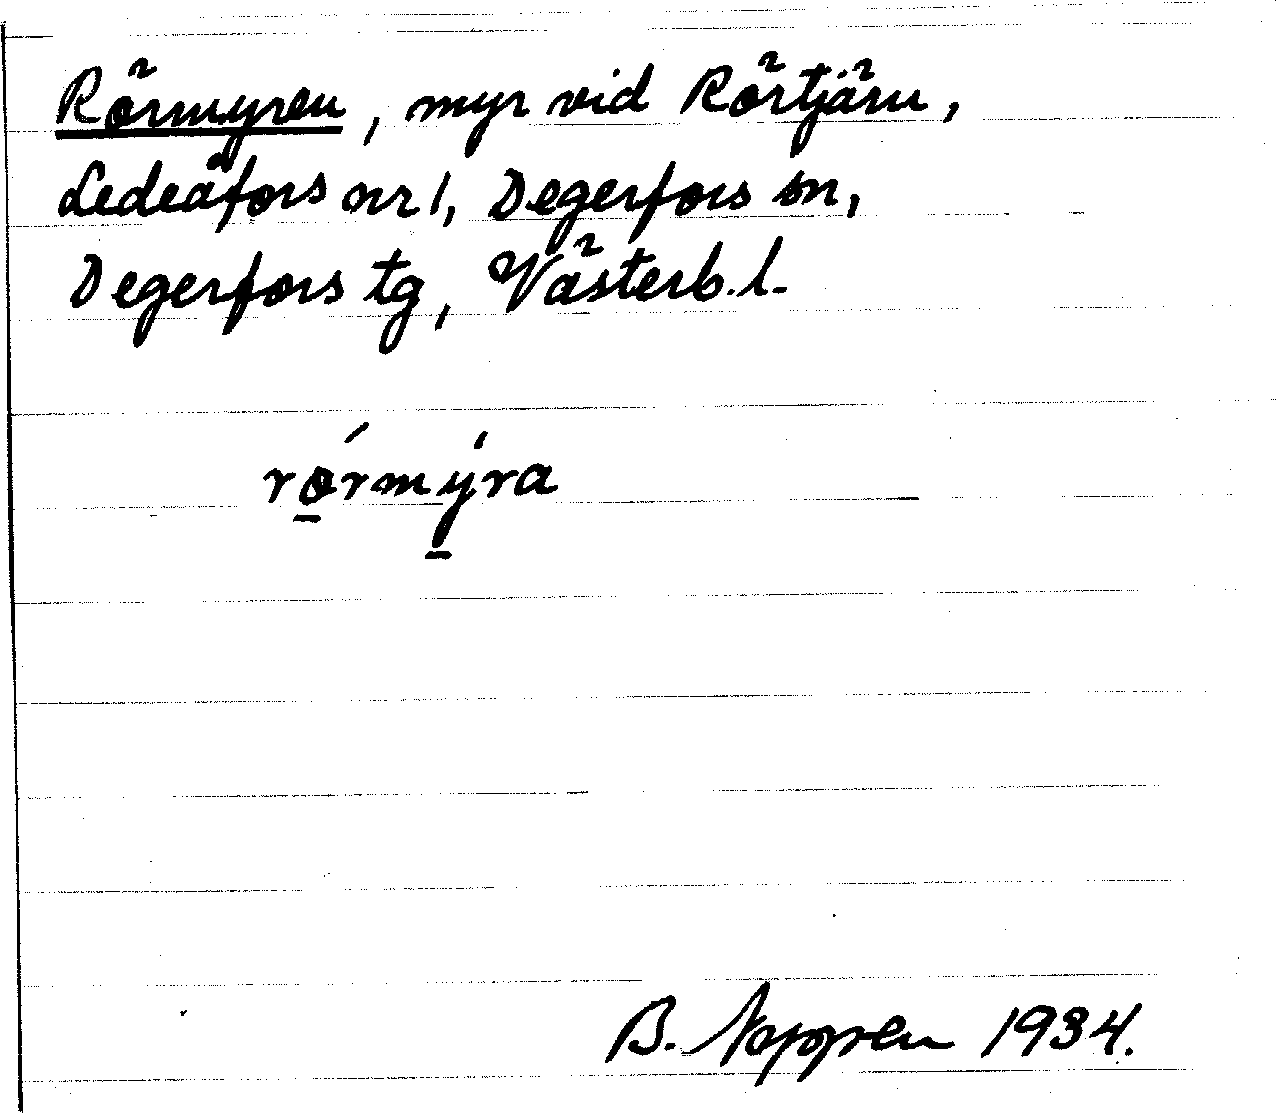 Rörmyren, myr vid Rörtjärn,
Ledeåfors nr 1, Degerfors sn,
Degerfors tg, Västerb. l.
rǿ̱rmý̱ra
B. 1934.